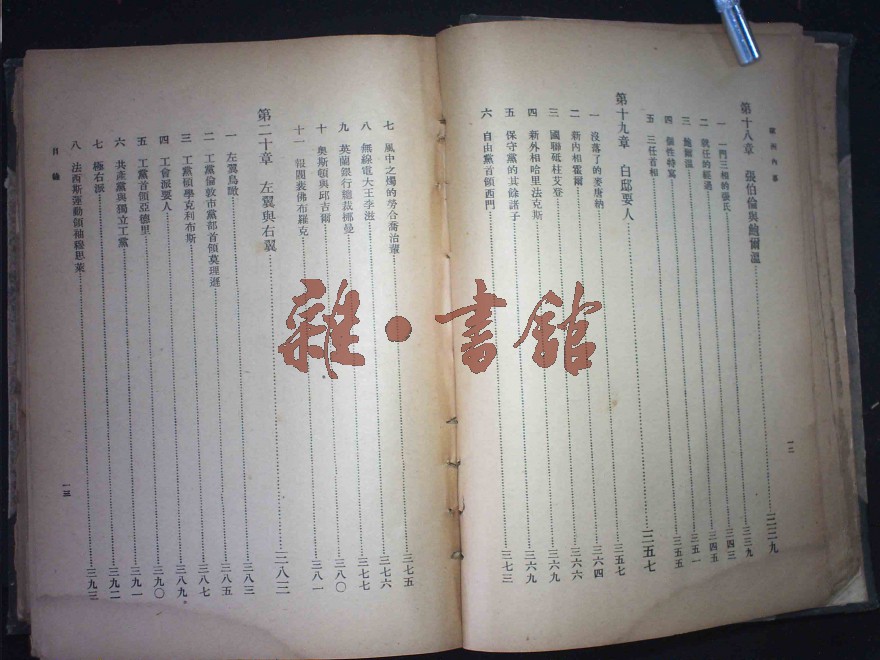 歐洲內幕
第十八章 張伯倫與鮑爾溫……三三九
一 一門三相的張氏……三三九
二 就任的經過……三四三
三 鮑爾溫……三四五
四 個性特寫……三五一
五 三任首相……三五五
第十九章 白邸要人……三五七
一 沒落了的麥唐納……三五七
二 新內相霍爾……三六四
三 國聯砥柱艾登……三六六
四 新外相哈里法克斯……三六九
五 保守黨的其餘諸子……三六九
六 自由黨首領西門……三七三
一二
七 風中之燭的勞合喬治輩……三七五
八 無線電大王李滋……三七六
九 英蘭銀行總裁挪曼……三七七
十 奧斯頓與邱吉爾……三八〇
十一 報閥裴佛布羅克……三八一
第二十章 左翼與右翼……三八三
一 左翼鳥瞰……三八三
二 工黨倫敦市黨部首領莫理遜……三八五
三 工黨碩學克利布斯……三八七
四 工會派要人……三八九
五 工黨首領亞德里……三九〇
六 共產黨與獨立工黨……三九一
七 極右派……三九二
八 法西斯運動領袖穆思萊……三九三
目錄
一三
雜·書館